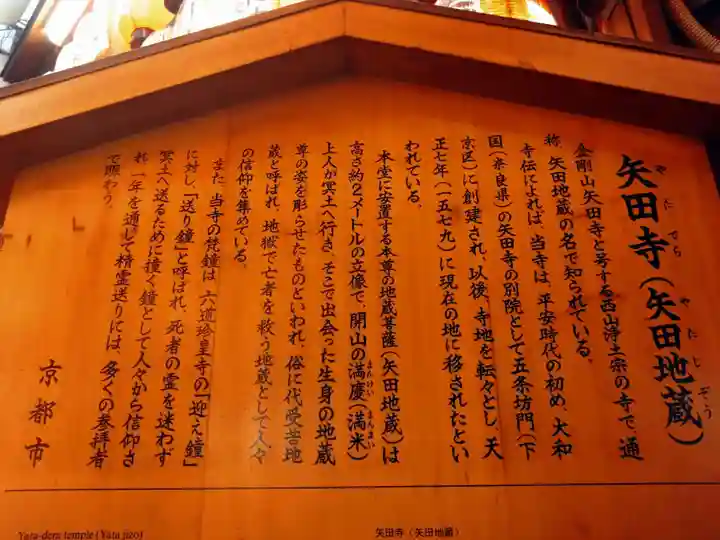 矢田寺（矢田地蔵）
やたでら　やたじぞう
金剛山矢田寺と号する西山浄土宗の寺で、通
称、矢田地蔵の名で知られている。
寺伝によれば、当寺は、平安時代の初め、大和
国（奈良県）の矢田寺の別院として五条坊門（下
京区）に創建され、以後、寺地を転々とし、天
正七年（一五七九）に現在の地に移されたとい
われている。
本堂に安置する本尊の地蔵菩薩（矢田地蔵）は
高さ約2メートルの立像で、開山の満慶（満米）
まんけい　まんまい
上人が冥土へ行き、そこで出会った生身の地蔵
尊の姿を彫らせたものといわれ、俗に代受苦地
蔵と呼ばれ、地獄で亡者を救う地蔵として人々
の信仰を集めている。
また、当寺の梵鐘は、六道珍皇寺の「迎え鐘」
に対し、「送り鐘」と呼ばれ、死者の霊を迷わず
冥土へ送るために撞く鐘として人々から信仰さ
れ、一年を通して精霊送りには、多くの参拝者
で賑わう。
京都市
Yata-dera temple (Yata jizo)
矢田寺（矢田地蔵）